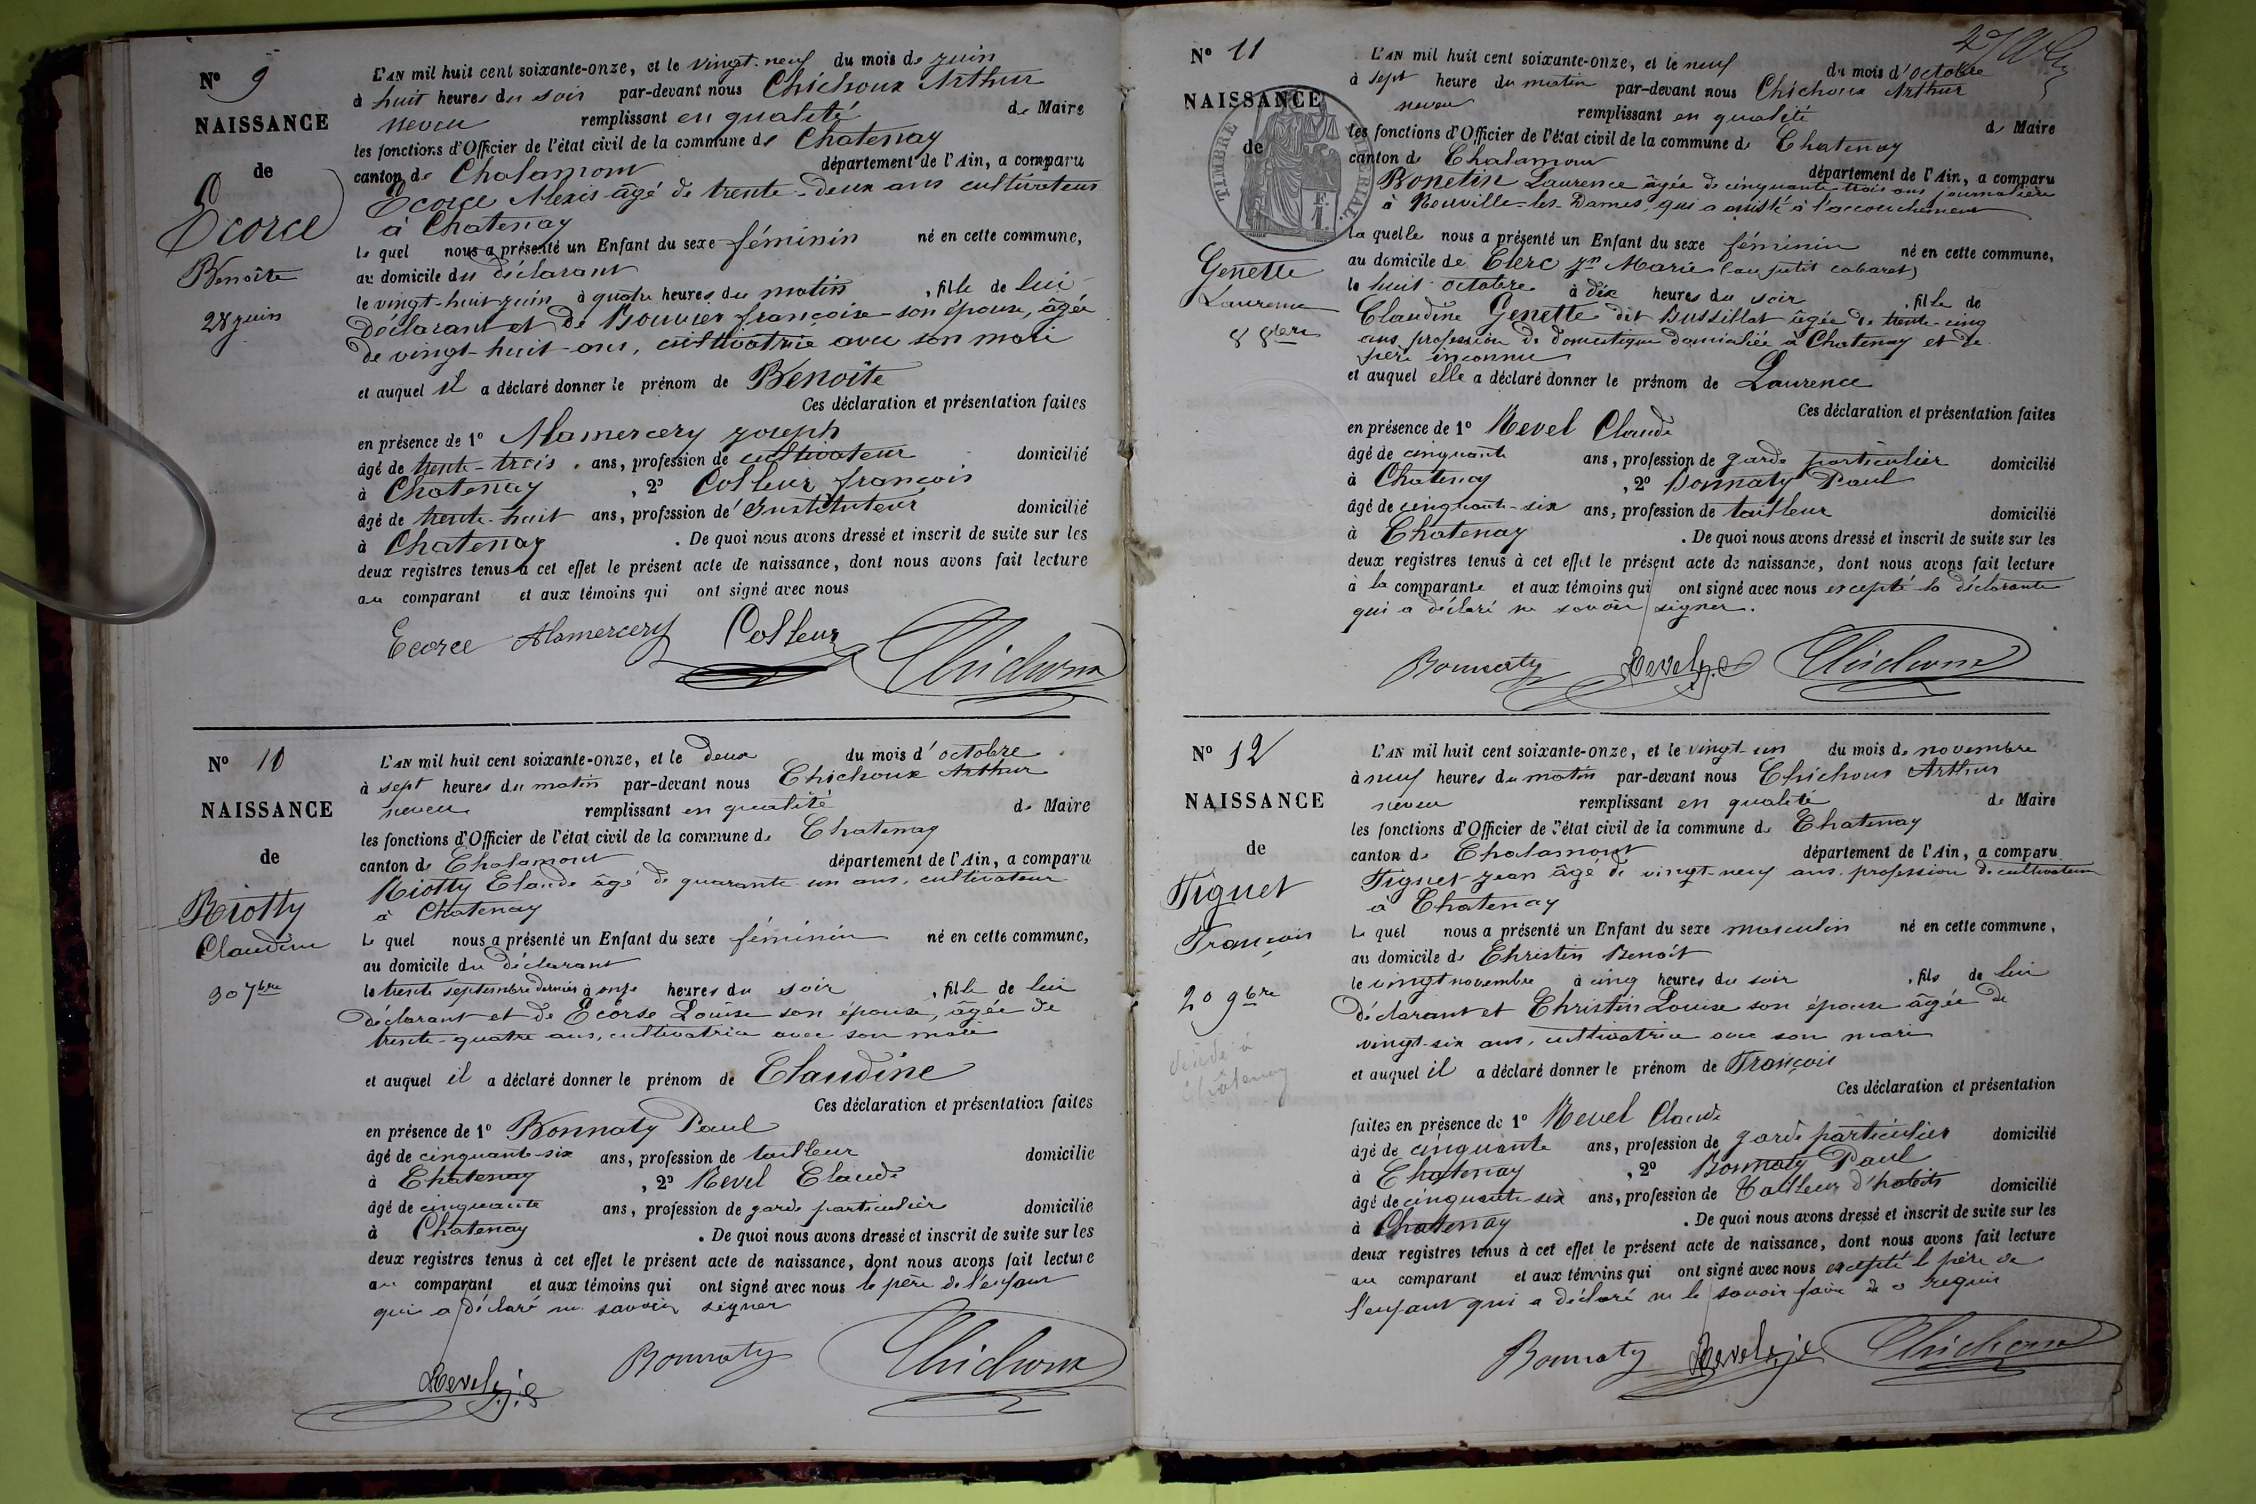 N° 9
NAISSANCE
de
Ecorce
Benoîte
28 juin
L'AN mil huit cent soixante-onze, et le vingt-neuf du mois de juin
à huit heures du soir par-devant nous Chichoux Arthur
neveu remplissant en qualité de Maire
les fonctions d'Officier de l'état civil de la commune de Chatenay
canton de Chalamont département de l'Ain, a comparu
Ecorce Alexis âgé de trente-deux ans cultivateur
à Chatenay
le quel nous a présenté un Enfant du sexe féminin né en cette commune,
au domicile du déclarant
le vingt-huit juin à quatre heures du matin, fille de lui
déclarant et de Bouvier françoise son épouse, âgée
de vingt-huit ans, cultivatrice avec son mari
et auquel il a déclaré donner le prénom de Benoîte
Ces déclaration et présentation faites
en présence de 1° Alamercery joseph
âgé de trente-trois ans, profession de cultivateur domicilié
à Chatenay, 2° Colleur françois
âgé de trente-huit ans, profession d'Instituteur domicilié
à Chatenay. De quoi nous avons dressé et inscrit de suite sur les
deux registres tenus à cet effet le présent acte de naissance, dont nous avons fait lecture
au comparant et aux témoins qui ont signé avec nous
Ecorce Alamercery Colleur Chichoux
N° 10
NAISSANCE
de
Riotty
Claudine
30 7bre
L'AN mil huit cent soixante-onze, et le deux du mois d'octobre
à sept heures du matin par-devant nous Chichoux Arthur
neveu remplissant en qualité de Maire
les fonctions d'Officier de l'état civil de la commune de Chatenay
canton de Chalamont département de l'Ain, a comparu
Riotty Claude âgé de quarante un ans, cultivateur
à Chatenay
le quel nous a présenté un Enfant du sexe féminin né en cette commune,
au domicile du déclarant
le trente septembre dernier à onze heures du soir, fille de lui
déclarant et de Ecorse Louise son épouse, âgée de
trente-quatre ans, cultivatrice avec son mari
et auquel il a déclaré donner le prénom de Claudine
Ces déclaration et présentation faites
en présence de 1° Bonnaty Paul
âgé de cinquante-six ans, profession de tailleur domicilié
à Chatenay, 2° Revel Claude
âgé de cinquante ans, profession de garde particulier domicilié
à Chatenay. De quoi nous avons dressé et inscrit de suite sur les
deux registres tenus à cet effet le présent acte de naissance, dont nous avons fait lecture
au comparant et aux témoins qui ont signé avec nous le père de l'enfant
qui a déclaré ne savoir signer
Revel Bonnaty Chichoux
N° 11
NAISSANCE
de
TIMBRE IMPÉRIAL
Genette
Laurence
8 8bre
L'AN mil huit cent soixante-onze, et le neuf du mois d'octobre
à sept heure du matin par-devant nous Chichoux Arthur
neveu remplissant en qualité de Maire
les fonctions d'Officier de l'état civil de la commune de Chatenay
canton de Chalamont département de l'Ain, a comparu
Bonetin Laurence âgée de cinquante-trois ans journalière
à Neuville-les-Dames, qui a assisté à l'accouchement
la quelle nous a présenté un Enfant du sexe féminin né en cette commune,
au domicile de Clerc jn Marie (au petit cabaret)
le huit octobre à dix heures du soir, fille de
Claudine Genette dit Bussillat âgée de trente-cinq
ans profession de domestique domiciliée à Chatenay et de
père inconnu
et auquel elle a déclaré donner le prénom de Laurence
Ces déclaration et présentation faites
en présence de 1° Revel Claude
âgé de cinquante ans, profession de garde particulier domicilié
à Chatenay, 2° Bonnaty Paul
âgé de cinquante-six ans, profession de tailleur domicilié
à Chatenay. De quoi nous avons dressé et inscrit de suite sur les
deux registres tenus à cet effet le présent acte de naissance, dont nous avons fait lecture
à la comparante et aux témoins qui ont signé avec nous excepté la déclarante
qui a déclaré ne savoir signer.
Bonnaty Revel Chichoux
N° 12
NAISSANCE
de
Tignet
François
20 9bre
décédé à
Châtenay
L'AN mil huit cent soixante-onze, et le vingt-un du mois de novembre
à neuf heures du matin par-devant nous Chichoux Arthur
neveu remplissant en qualité de Maire
les fonctions d'Officier de l'état civil de la commune de Chatenay
canton de Chalamont département de l'Ain, a comparu
Tignet jean âgé de vingt-neuf ans profession de cultivateur
à Chatenay
le quel nous a présenté un Enfant du sexe masculin né en cette commune,
au domicile de Christin Benoît
le vingt novembre à cinq heures du soir, fils de lui
déclarant et Christin Louise son épouse âgée de
vingt-six ans, cultivatrice avec son mari
et auquel il a déclaré donner le prénom de François
Ces déclaration et présentation
faites en présence de 1° Revel Claude
âgé de cinquante ans, profession de garde particulier domicilié
à Chatenay, 2° Bonnaty Paul
âgé de cinquante-six ans, profession de Tailleur d'habits domicilié
à Chatenay. De quoi nous avons dressé et inscrit de suite sur les
deux registres tenus à cet effet le présent acte de naissance, dont nous avons fait lecture
au comparant et aux témoins qui ont signé avec nous excepté le père de
l'enfant qui a déclaré ne le savoir faire de ce requis
Bonnaty Revel Chichoux